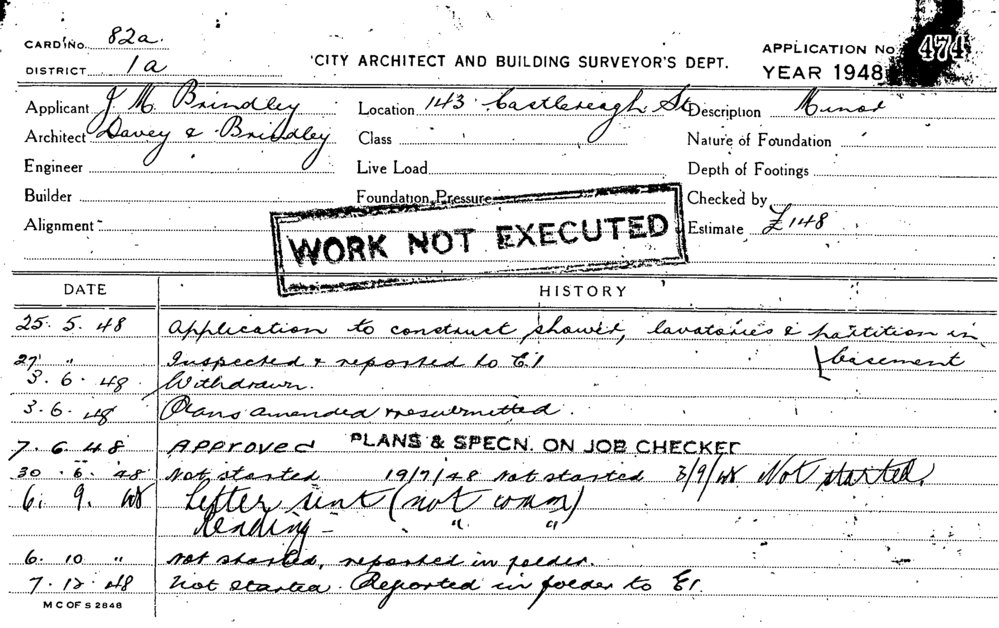 CARD No. 82a.
DISTRICT 1a
'CITY ARCHITECT AND BUILDING SURVEYOR'S DEPT.
APPLICATION No 474
YEAR 1948
Applicant J M Brindley Location 143 Castlereagh St Description Minor
Architect Davey & Brindley Class Nature of Foundation
Engineer Live Load Depth of Footings
Builder Foundation Pressure Checked by
Alignment Estimate £148
WORK NOT EXECUTED
DATE HISTORY
25. 5. 48 Application to construct shower, lavatories & partition in
basement
27 " Inspected & reported to E1
3. 6. 48. Withdrawn.
3. 6. 48 Plans amended & resubmitted.
7. 6. 48 APPROVED PLANS & SPECN. ON JOB CHECKED
30. 6. 48 Not started 19/7/48 Not started 3/9/48 Not started.
6. 9. 48 Letter sent (not comm)
Pending - " "
6. 10 " Not started, reported in folder.
7. 12. 48 Not started. Reported in folder to E1.
M C OF S 2848